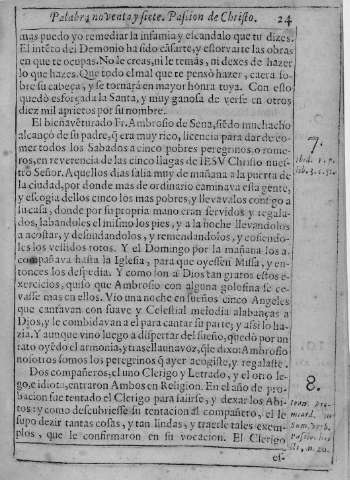 Palabra noventa y siete. Passion de Christo. 24
mas puedo yo remediar la infamia y escandalo que tu dizes.
El intẽto del Demonio ha sido cãsarte, y estorvarte las obras
en que te ocupas. No le creas, ni le temas, ni dexes de hazer
lo que hazes. Que todo el mal que te pensò hazer, caera so-
bre su cabeça, y se tornarà en mayor honra tuya. Con esto
quedò esforçada la Santa, y muy ganosa de verse en otros
diez mil aprietos por su nombre.
El bienavẽturado Fr. Ambrosio de Sena, siẽdo muchacho
alcançò de su padre, q̃ era muy rico, licencia para dar de co-
mer todos los Sabados a cinco pobres peregrinos, o rome-
ros, en reverencia de las cinco llagas de IESV Christo nues-
tro Señor. Aquellos dias salia muy de mañana a la puerta de
la ciudad, por donde mas de ordinario caminava esta gente,
y escogia dellos cinco los mas pobres, y llevavalos consigo a
su casa, donde por su propria mano eran servidos y regala-
dos, labandoles el mismo los pies, y a la noche llevandolos
a acostar, y desnudandolos, y remendandolos, y cosiendo-
les los vestidos rotos. Y el Domingo por la mañana los a-
compañava hasta la Iglesia, para que oyessen Missa, y en-
tonces los despedia. Y como son a Dios tan gratos estos e-
xercicios, quiso que Ambrosio con alguna golosina se ce-
vasse mas en ellos. Vio una noche en sueños cinco Angeles
que cantavan con suave y Celestial melodia alabanças a
Dios, y le combidavan a el para cantar su parte; y assi lo ha-
zia. Y aunque vino luego a dispertar del sueño, quedò por un
rato oyẽdo el armonia, y tras ella una voz, q̃ le dixo: Ambrosio
nosotros somos los peregrinos q̃ ayer acogiste, y regalaste.
Dos compañeros, el uno Clerigo y Letrado, y el otro le-
go, e idiota, entraron Ambos en Religion. En el año de pro-
bacion fue tentado el Clerigo para salirse, y dexar los Abi-
tos: y como descubriesse su tentacion al compañero, el le
supo dezir tantas cosas, y tan lindas, y traerle tales exem-
plos, que le confirmaron en su vocacion. El Clerigo
es-
7.
8.